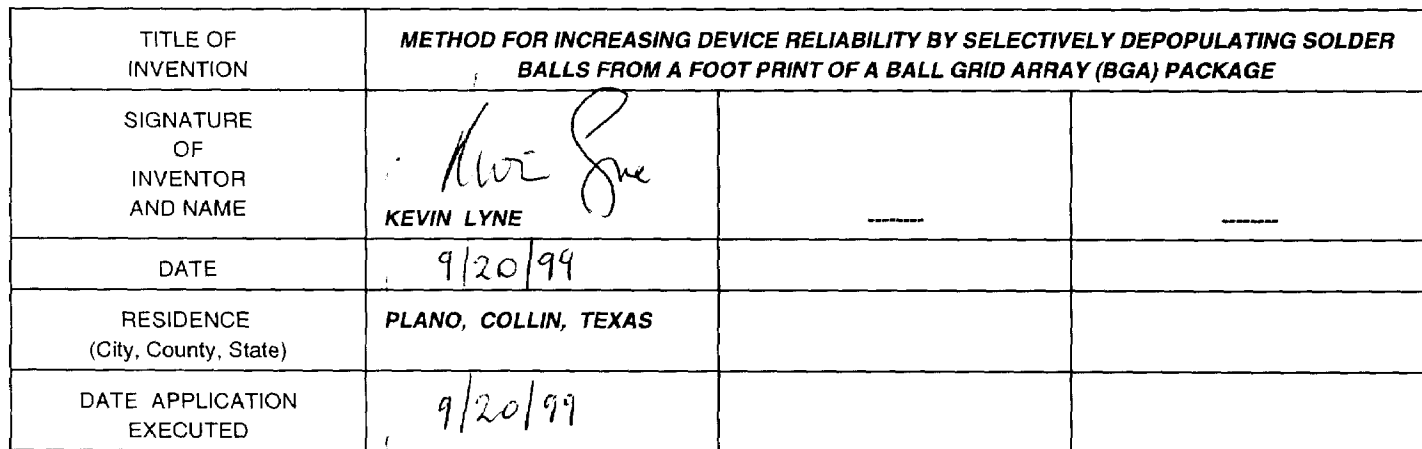 TITLE OF
INVENTION
METHOD FOR INCREASING DEVICE RELIABILITY BY SELECTIVELY DEPOPULATING SOLDER
BALLS FROM A FOOT PRINT OF A BALL GRID ARRAY (BGA) PACKAGE
SIGNATURE
OF
INVENTOR
AND NAME
KEVIN LYNE
--------
--------
DATE
9/20/99
RESIDENCE
(City, County, State)
PLANO, COLLIN, TEXAS
DATE APPLICATION
EXECUTED
9/20/99